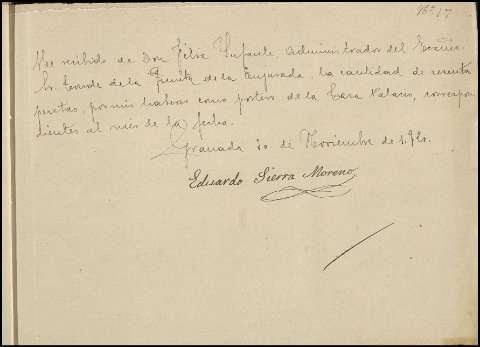 Nº 17
He recibido de Don Félix Infante, Administrador del Excmo.
Sr. Conde de la Puebla de la cantidad de sesenta
pesetas, por mis haberes como portero de la Casa Palacio, correspon
dientes al mes de la fecha.
Granada 30 de Noviembre de
Eduardo Sierra Moreno